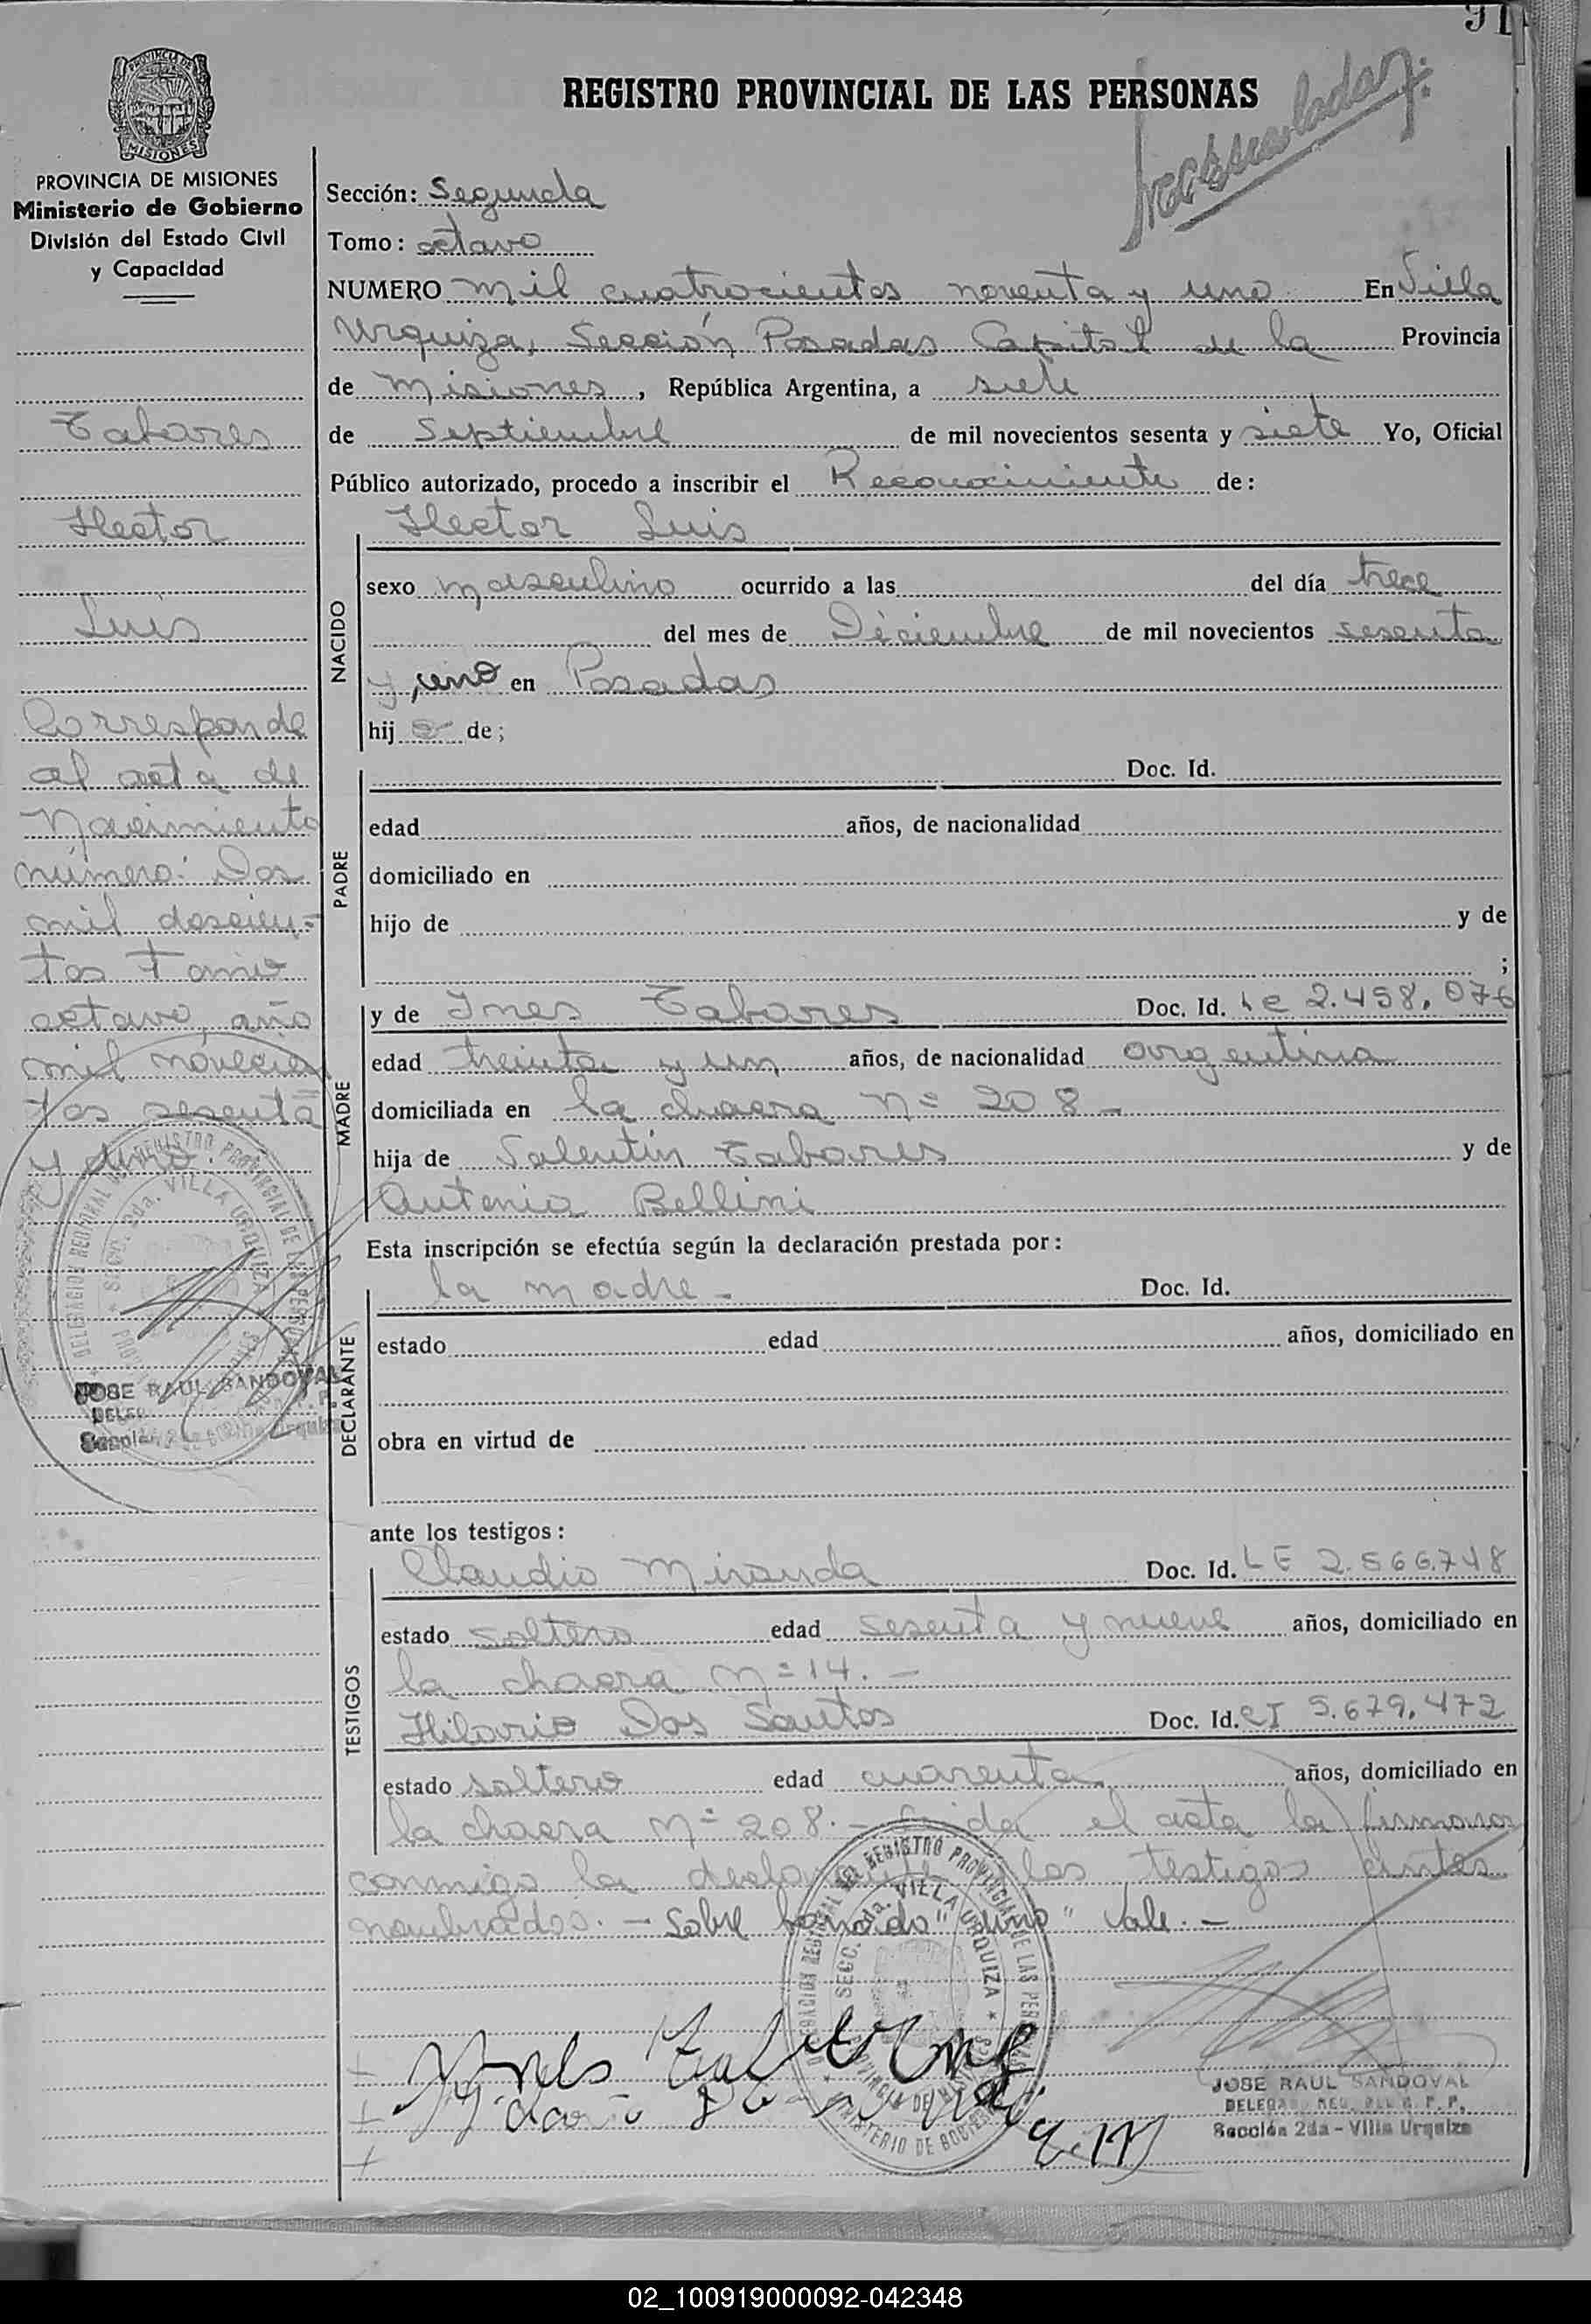 91
REGISTRO PROVINCIAL DE LAS PERSONAS
PROVINCIA DE MISIONES
Ministerio de Gobierno
División del Estado Civil
y Capacidad
Sección: Segunda
Tomo: octavo
NUMERO mil cuatrocientos noventa y uno En Villa
Urquiza, Sección Posadas Capital de la Provincia
de Misiones, República Argentina, a siete
de Septiembre de mil novecientos sesenta y siete Yo, Oficial
Público autorizado, procedo a inscribir el Reconocimiento de:
Hector Luis
NACIDO
sexo masculino ocurrido a las del día trece
del mes de Diciembre de mil novecientos sesenta
y uno en Posadas
hijo de;
PADRE
Doc. Id.
edad años, de nacionalidad
domiciliado en
hijo de y de
;
MADRE
y de Ines Tabares Doc. Id. LC 2.458.076
edad treinta y un años, de nacionalidad argentina
domiciliada en la chacra Nº 208-
hija de Valentin Tabares y de
Antonia Bellini
Esta inscripción se efectúa según la declaración prestada por:
DECLARANTE
la madre - Doc. Id.
estado edad años, domiciliado en
obra en virtud de
ante los testigos:
TESTIGOS
Claudio Miranda Doc. Id. LE 2.566.748
estado soltero edad sesenta y nueve años, domiciliado en
la chacra Nº 14. -
Hilario Dos Santos Doc. Id. CI 5.679.472
estado soltero edad cuarenta años, domiciliado en
la chacra Nº 208. - el acta la firman
conmigo la los testigos antes
nombrados. - Sobre borrado "uno" Vale. -
JOSE RAUL SANDOVAL
Sección 2da - Villa Urquiza
Tabares
Hector
Luis
Corresponde
al acta de
Nacimiento
número: Dos
mil doscien-
tos Tomo
octavo, año
mil novecien
tos sesenta
y uno.
JOSE RAUL SANDOVAL
02_100919000092-042348